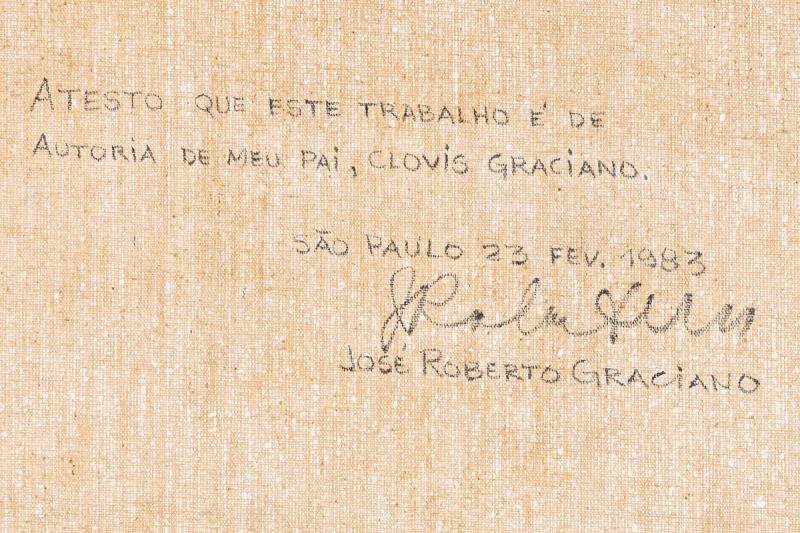 ATESTO QUE ESTE TRABALHO É DE
AUTORIA DE MEU PAI, CLOVIS GRACIANO.
SÃO PAULO 23 FEV. 1983
JOSÉ ROBERTO GRACIANO